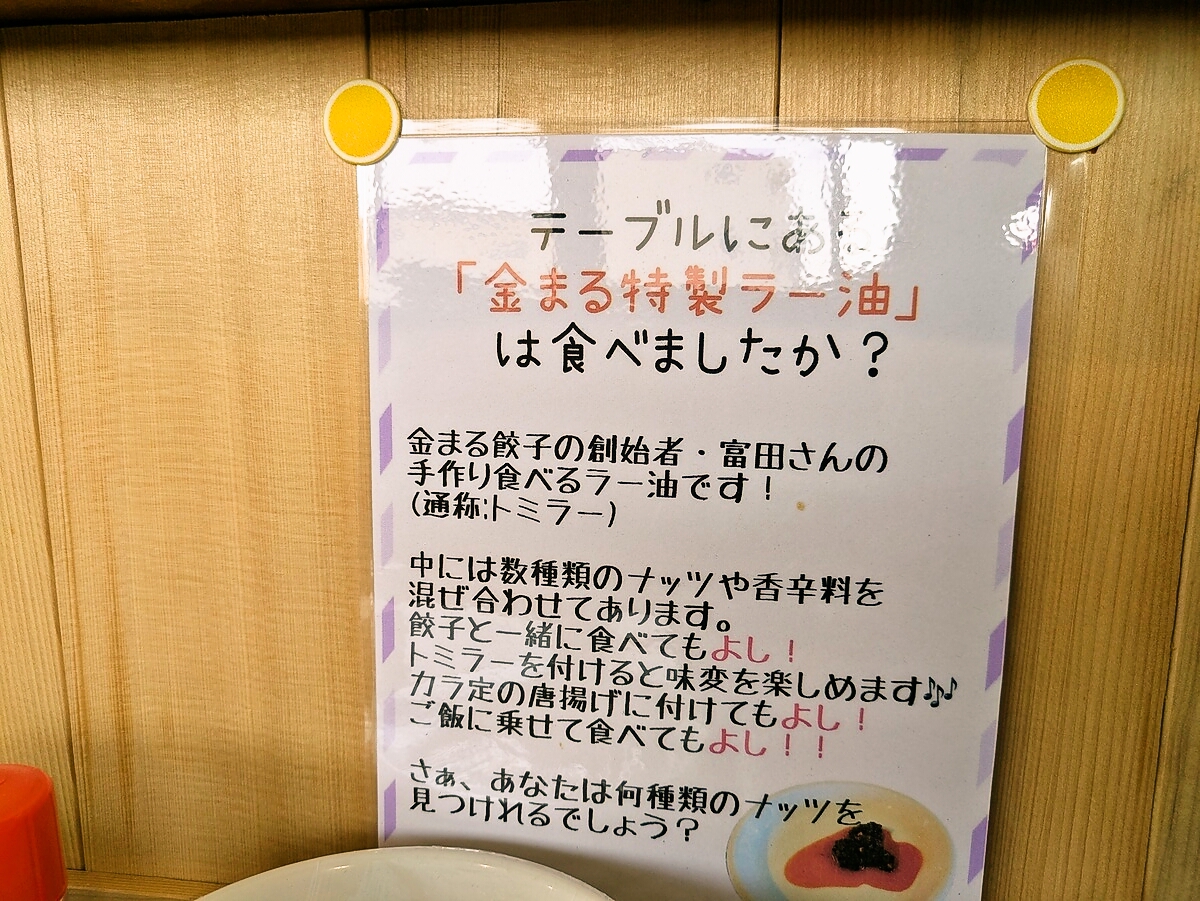 テーブルにある
「金まる特製ラー油」
は食べましたか？
金まる餃子の創始者・富田さんの
手作り食べるラー油です！
(通称:トミラー)
中には数種類のナッツや香辛料を
混ぜ合わせてあります。
餃子と一緒に食べてもよし！
トミラーを付けると味変を楽しめます🎶
カラ定の唐揚げに付けてもよし！
ご飯に乗せて食べてもよし！！
さぁ、あなたは何種類のナッツを
見つけれるでしょう？